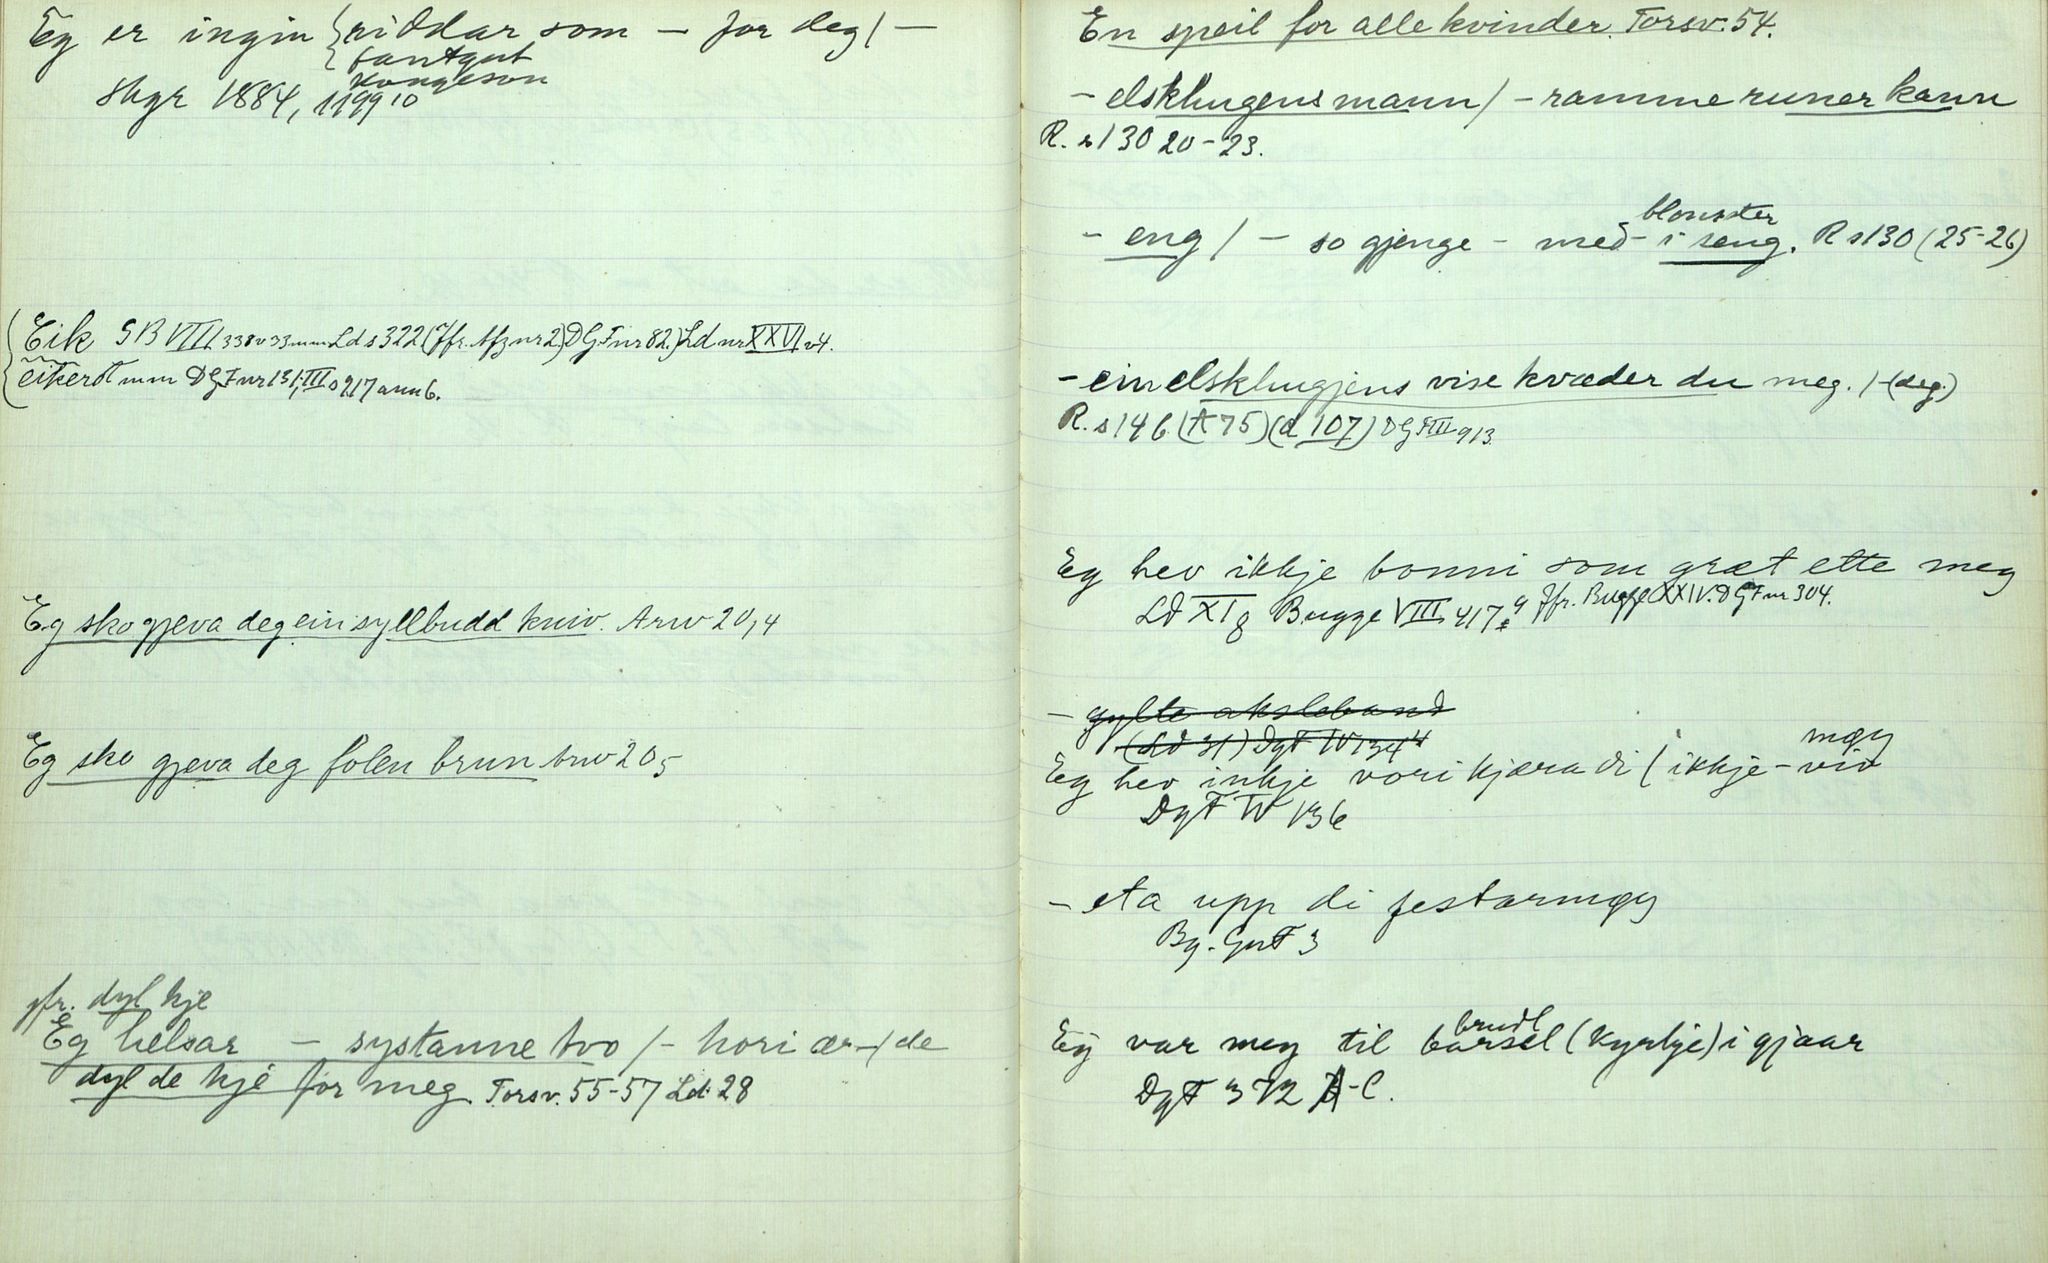 Eg er ingin { riddar som – for deg / –
fantgut
kongeson
Skgr 1884, 1199 10
{ Eik SB VIII 338 v 33 mm Ld s 322 (Jfr. Afz nr 2) DGF nr 82.) Ld nr XXVI v4.
eikerot mm DGF nr 131, III s 917 anm 6.
Eg sko gjeva deg ein syllbudd kniv. Arw 20,4
Eg sko gjeva deg folen brun Arw 20 5
jfr. dyl kje
Eg helsar – systanne tvo / – hori ær – / de
dyl de kje for meg. Torsv. 55-57 Ld. 28
En speil for alle kvinder. Torsv. 54.
– elsklugens mann / – ramme runer kann
R. s 130 20-23.
blomster
– eng / – so gjenge – med – i seng. R s 130 (25-26)
– ein elsklugjens vise kvæder du meg. / – (deg.)
R. s 146 (A 75) (d 107) DGF III 913.
Eg hev ikkje bonni som græt ette meg
Ld XI 8 Bugge VIII 417 e 9 Jfr. Bugge XXIV. DGF nr 304.
– gylte aksleband
(Ld 31) DgF IV 134 4
møy
Eg hev inkje vori kjæra di / ikkje – viv
DgF IV 136
– eta upp di festarmøy
Bg. GnF 3
brudl
Eg var meg til barsel (kyrkje) i gjaar
DgF 372 A-C.